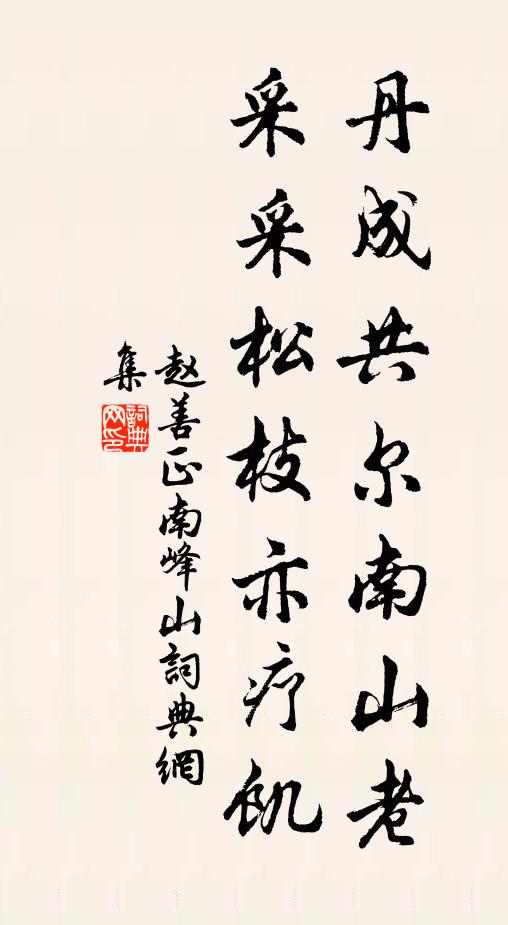 丹成共尔南山老
采采松枝亦疗飢
赵善正南峰山詞典網
集
詞典
网印